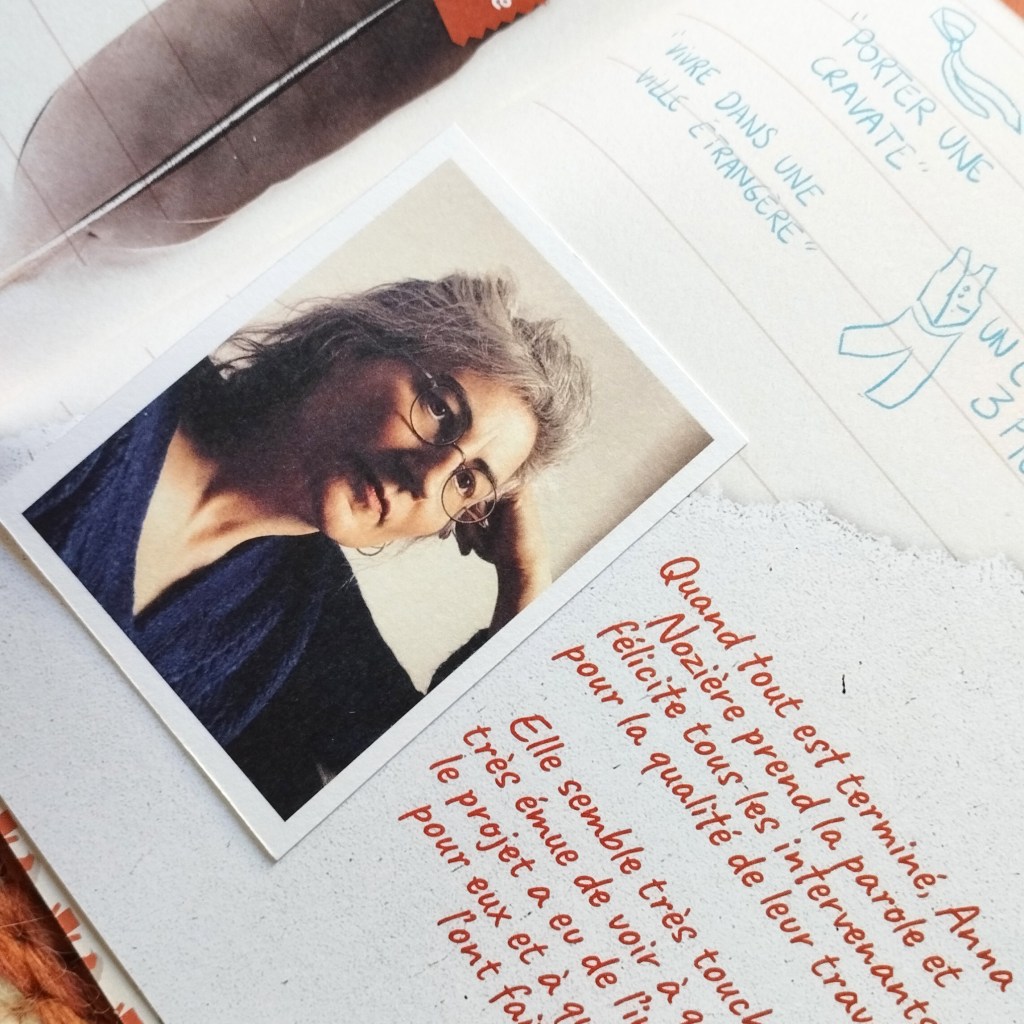 "VIVRE DANS UNE
VILLE ÉTRANGÈRE"
"PORTER UNE
CRAVATE"
UN
3
Quand tout est terminé, Anna
Nozière prend la parole et
félicite tous les intervenants
pour la qualité de leur trav
Elle semble très touch
très émue de voir à q
le projet a eu de l'i
pour eux et à q
l'ont fai